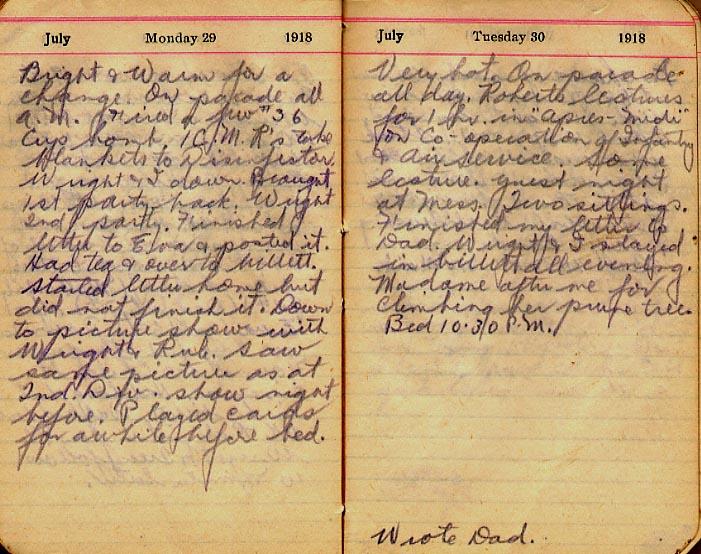 July Monday 29 1918
Bright & Warm for a
change. On parade all
a.m. Fired a few "36
Cup bomb. 1 C.M.R's take
blankets to disinfector.
Wright & I down. Brought
1st party back. Wright
2nd party. Finished
letter to Elva & posted it.
Had tea & over to billett.
Started letter home but
did not finish it. Down
to picture show with
Wright & Rub. Saw
same picture as at
2nd. Div. show night
before. Played cards
for awhile before bed.
July Tuesday 30 1918
Very hot. On parade
all day. Roberts lectures
for 1 hr. in "Apres-Midi"
on Co-operation of Infantry
& Air service. Some
lecture. Guest night
at Mess. Two sittings.
Finished my letter to
Dad. Wright & I stayed
in billett all evening.
Madame after me for
climbing her prune tree.
Bed 10:30 P.M.
Wrote Dad.